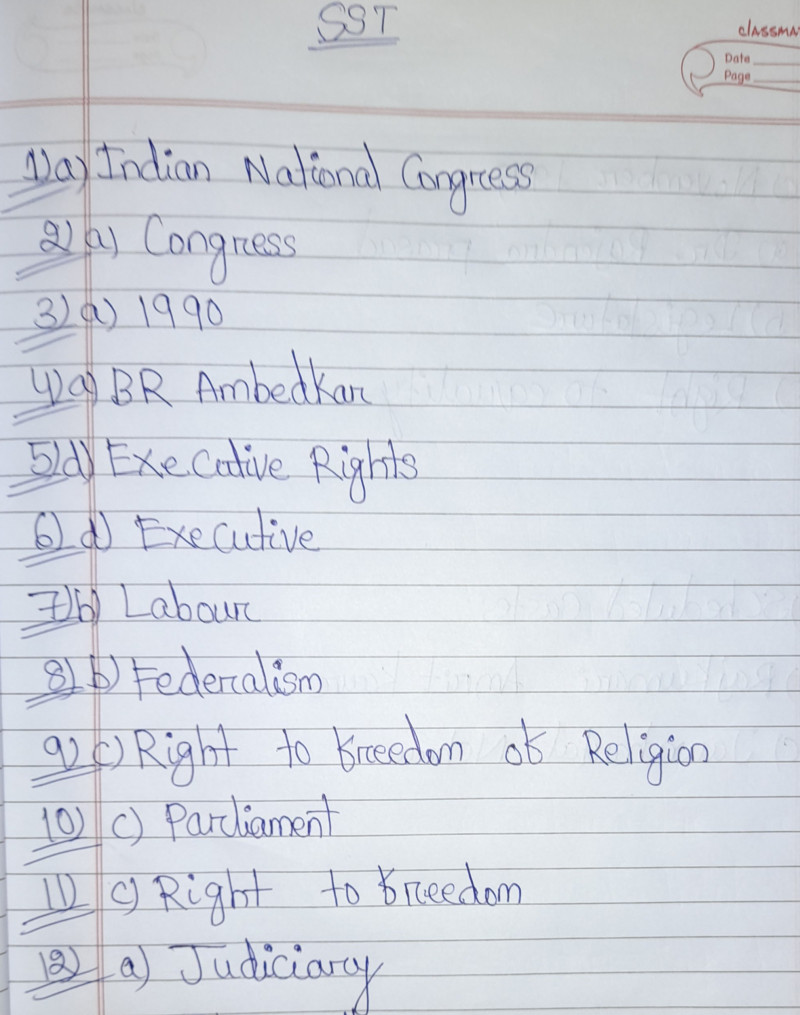 SST
CLASSMA
Date
Page
1) a) Indian National Congress
2) a) Congress
3) a) 1990
4) a) BR Ambedkar
5) d) Executive Rights
6) d) Executive
7) b) Labour
8) b) Federalism
9) c) Right to freedom of Religion
10) c) Parliament
11) c) Right to freedom
12) a) Judiciary